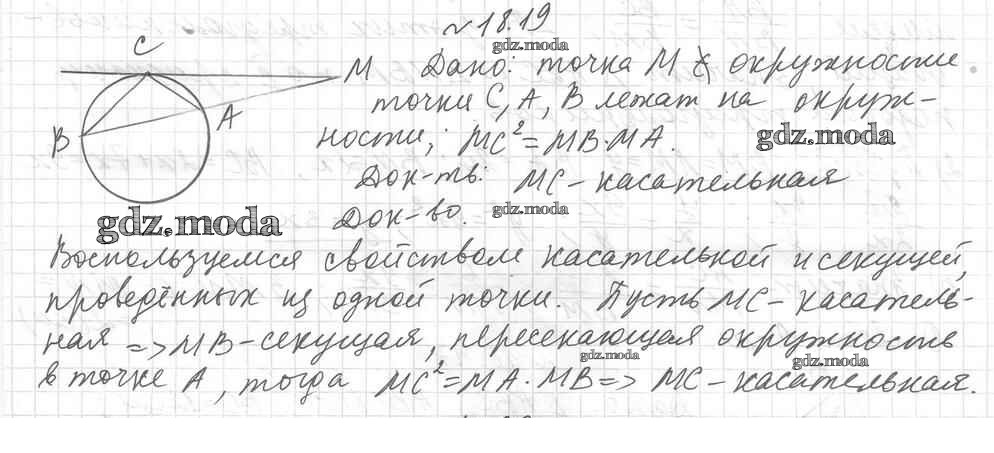 № 18.19
gdz.moda
C
M Дано: точка M ∉ окружности
точки C, A, B лежат на окруж-
A
B ности; MC²=MB·MA.
gdz.moda
Док-ть: MC - касательная
gdz.moda
gdz.moda
Док-во.
Воспользуемся свойством касательной и секущей,
проведённых из одной точки. Пусть MC - касатель-
ная => MB - секущая, пересекающая окружность
gdz.moda
gdz.moda
в точке A, тогда MC²=MA·MB => MC - касательная.